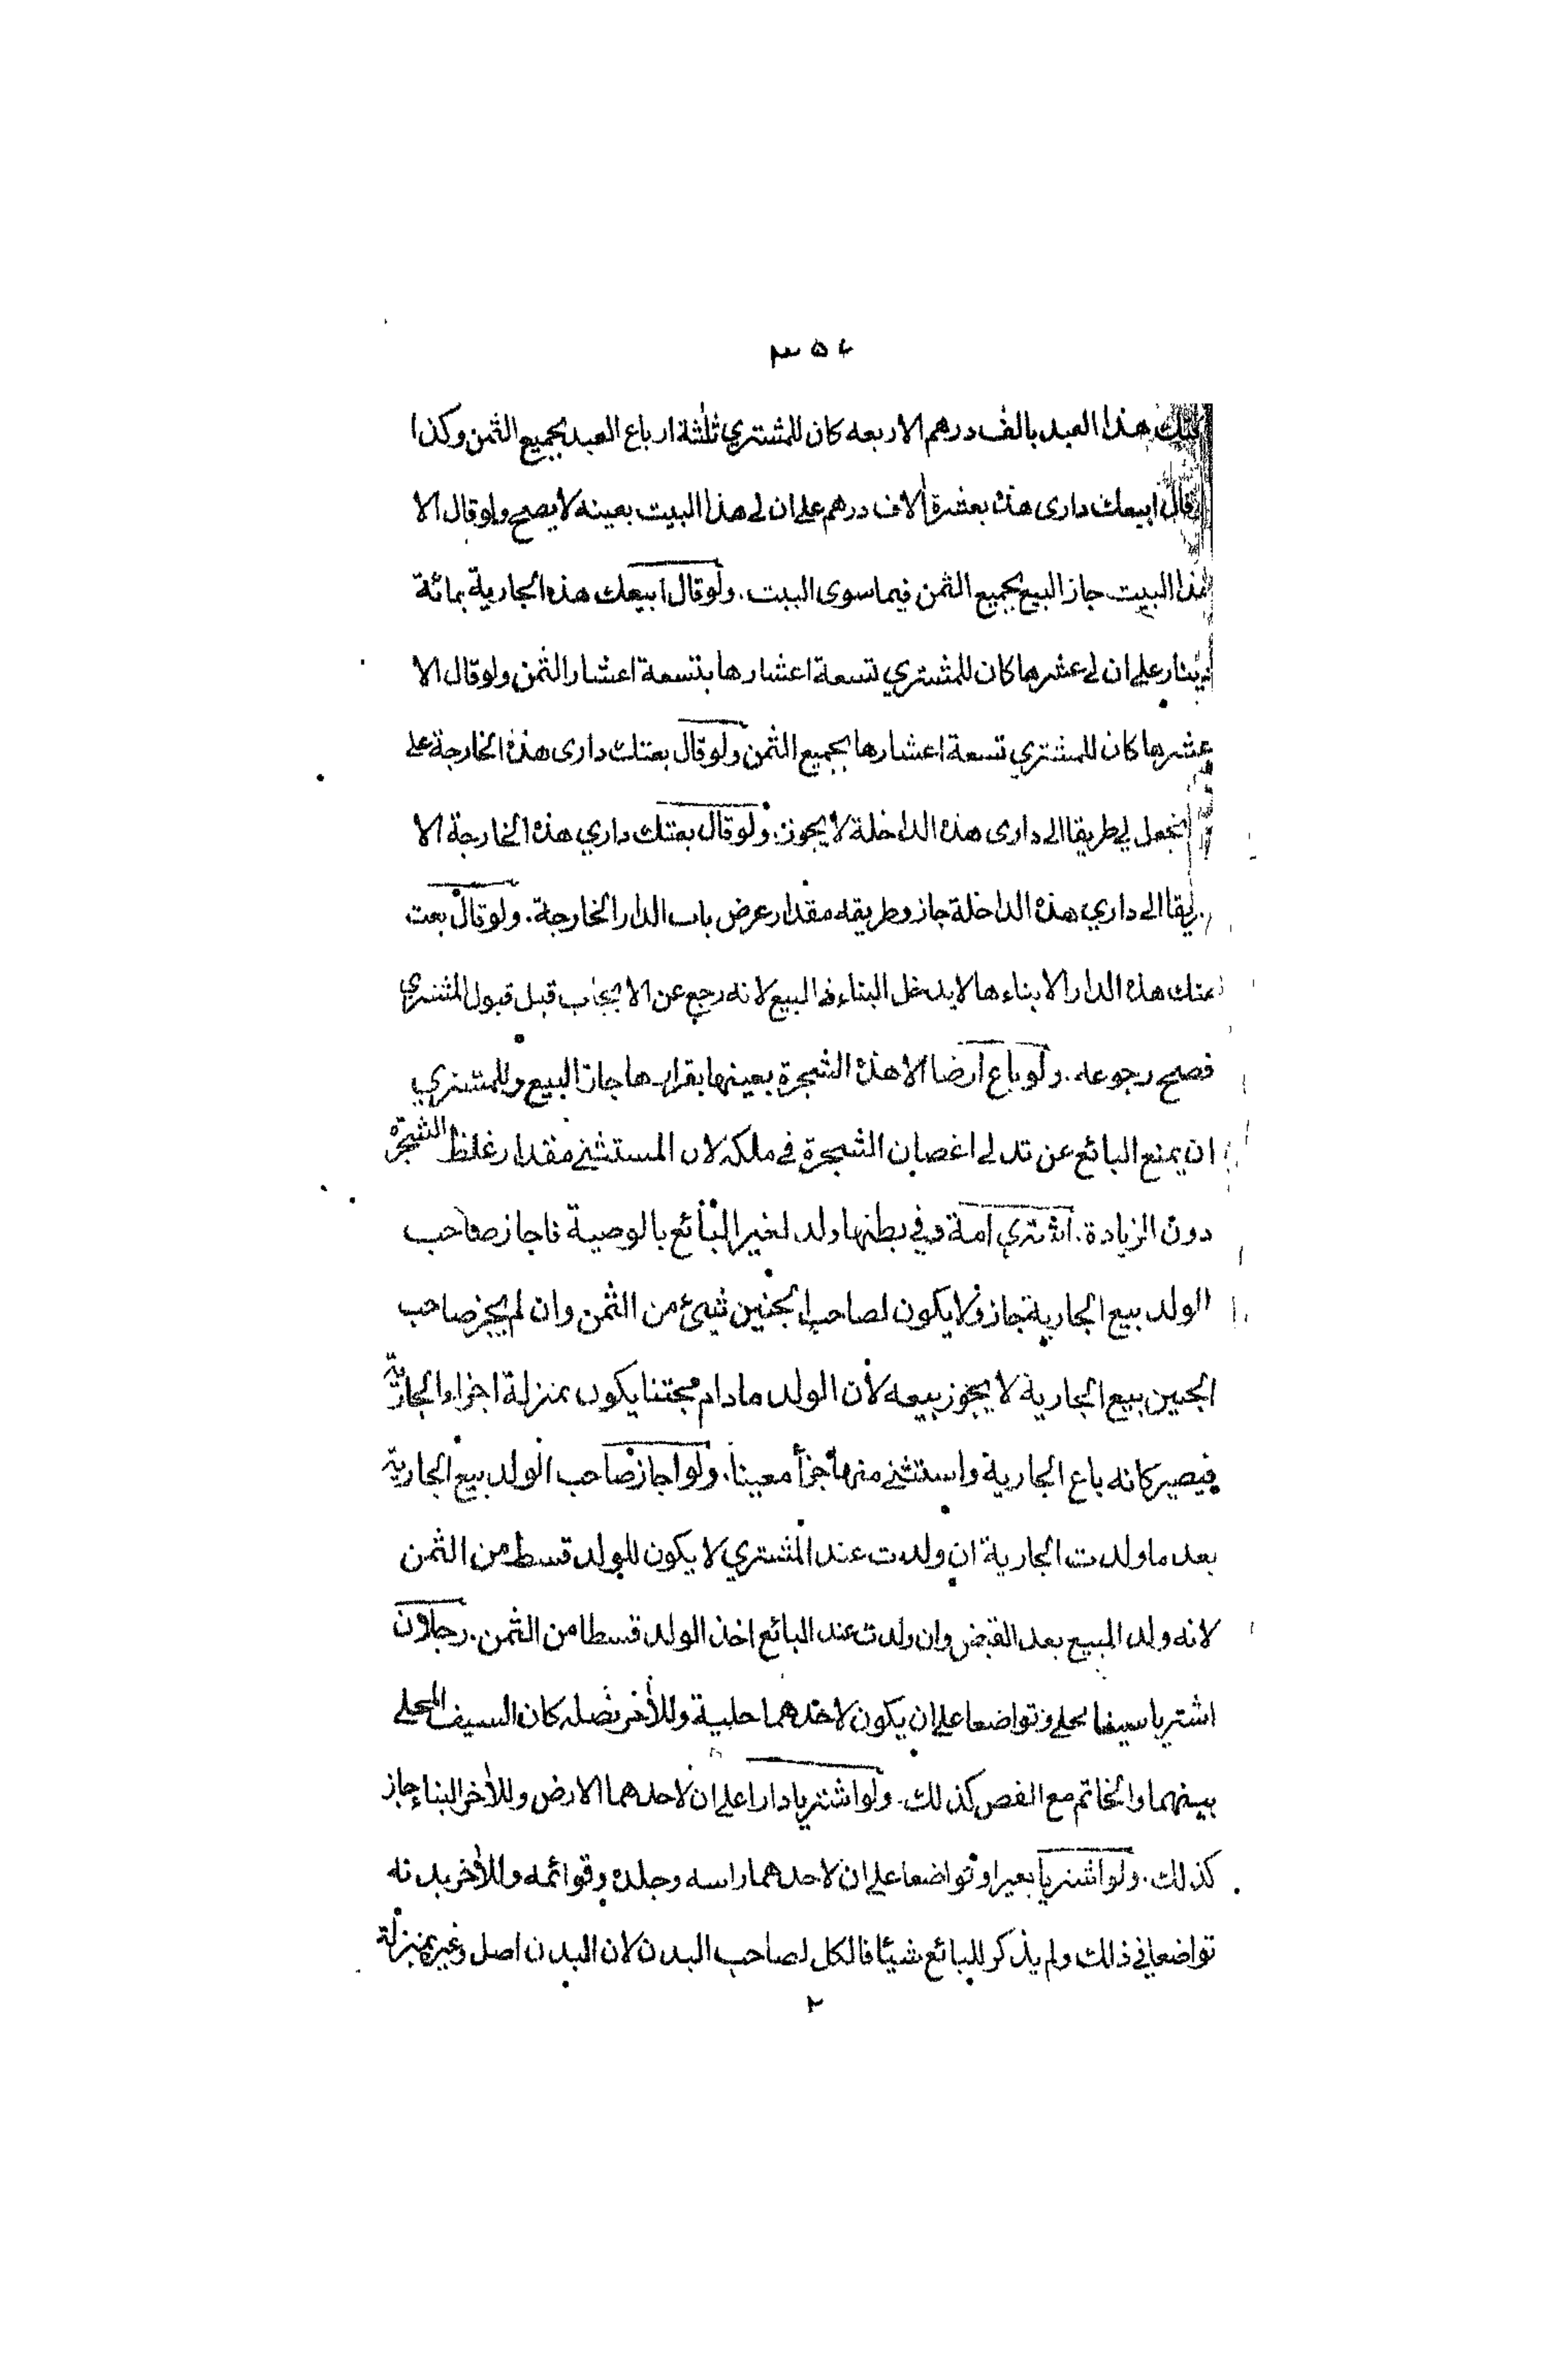 ٣٥٤
هذا العبد بالف درهم الا ربعه كان للمشتري ثلثة ارباع العبد بجميع الثمن وكذا
قال ابيعك دارى هذه بعشرة ألاف درهم على ان لي هذا البيت بعينه لا يصح ولو قال الا
هذا البيت جاز البيع بجميع الثمن فيما سوى البيت. ولو قال ابيعك هذه الجارية بمائة
دينار على ان لي عشرها كان للمشتري تسعة اعشارها بتسعة اعشار الثمن ولو قال الا
عشرها كان للمشتري تسعة اعشارها بجميع الثمن ولو قال بعتك دارى هذه الخارجة على
تجعل لي طريقا الى دارى هذه الداخلة لا يجوز. ولو قال بعتك داري هذه الخارجة الا
ريقا الى داري هذه الداخلة جاز وطريقه مقدار عرض باب الدار الخارجة. ولو قال بعت
منك هذه الدار الا بناءها لا يدخل البناء في البيع لانه رجع عن الايجاب قبل قبول المشتري
فصح رجوعه. ولو باع ارضا الا هذه الشجرة بعينها بقرارها جاز البيع وللمشتري
ان يمنع البائع عن تدلي اغصان الشجرة في ملكه لان المستثنى مقدار غلظ الشجرة
دون الزيادة. اشتري امة وفي بطنها ولد لغير البائع بالوصية فاجاز صاحب
الولد بيع الجارية جاز ولا يكون لصاحب الجنين شيئ من الثمن وان لم يجز صاحب
الجنين بيع الجارية لا يجوز بيعه لأن الولد مادام مجتنا يكون بمنزلة اجزاء الجارية
فيصير كانه باع الجارية واستثنى منها جزأ معينا. ولو اجاز صاحب الولد بيع الجارية
بعد ما ولدت الجارية ان ولدت عند المشتري لا يكون للولد قسط من الثمن
لانه ولد المبيع بعد القبض وان ولدت عند البائع اخذ الولد قسطا من الثمن. رجلان
اشتريا سيفا محلى وتواضعا على ان يكون لاحدهما حلية وللأخر نصله كان السيف المحلى
بينهما والخاتم مع الفص كذلك. ولو اشتريا دارا على ان لاحدهما الارض وللأخر البناء جاز
كذلك. ولو اشتريا بعيرا وتواضعا على ان لاحدهما راسه وجلده وقوائمه وللأخر بدنه
تواضعا في ذلك ولم يذكر للبائع شيئا فالكل لصاحب البدن لان البدن اصل وغيره بمنزلة
٢